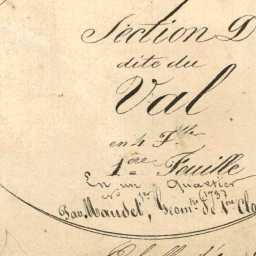 Section D
dite du
Val
en 4 Flles
1ère Feuille
En un Quartier
Par Maudet, Géomre de 1re Cla